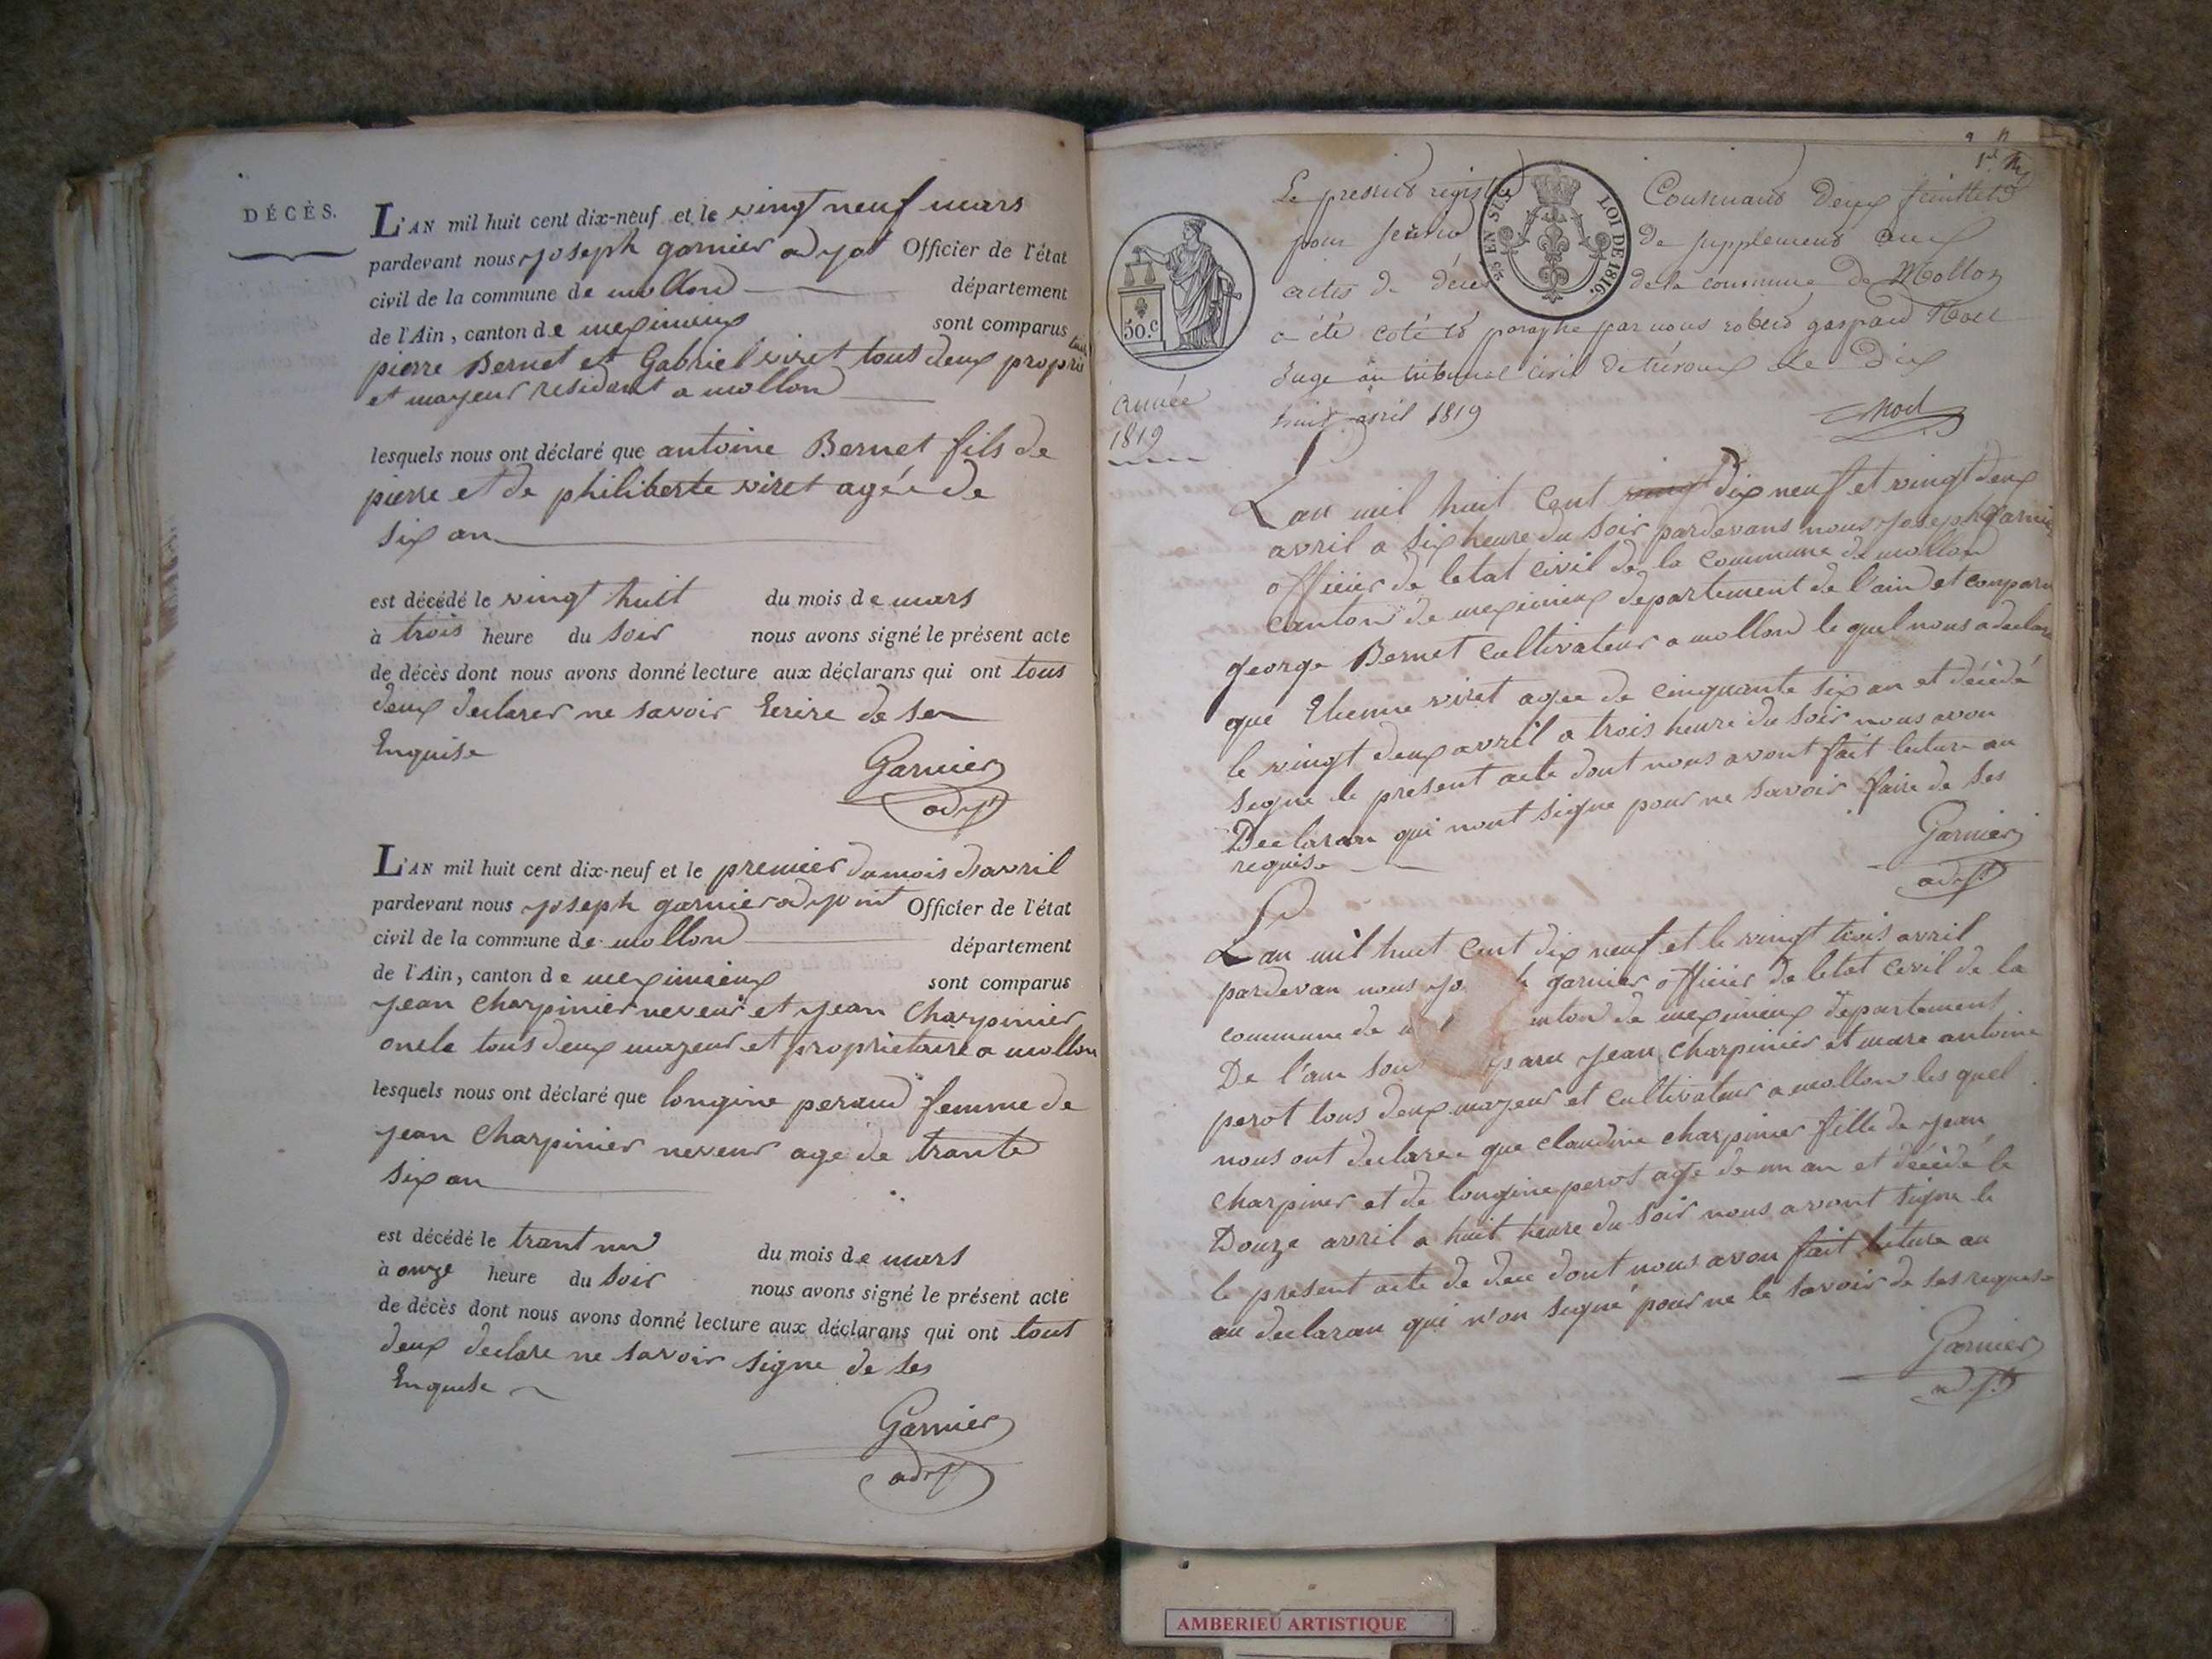 DÉCÈS.
L'AN mil huit cent dix-neuf et le vingt neuf mars
pardevant nous joseph garnier adjot Officier de l'état
civil de la commune de mollon département
de l'Ain, canton de meximieux sont comparus
pierre Bernet et Gabriel viret tous deux propri
et mayeur residant a mollon
lesquels nous ont déclaré que antoine Bernet fils de
pierre et de philiberte viret agée de
six an
est décédé le vingt huit du mois de mars
à trois heure du soir nous avons signé le présent acte
de décès dont nous avons donné lecture aux déclarans qui ont tous
deux declarer ne savoir Ecrire de ser
Enquise
Garnier
adjt
L'AN mil huit cent dix-neuf et le premier du mois d'avril
pardevant nous joseph garnier adjoint Officier de l'état
civil de la commune de mollon département
de l'Ain, canton de meximieux sont comparus
jean charpinier neveur et jean Charpinier
oncle tous deux mayeur et proprietaire a mollon
lesquels nous ont déclaré que longine peraud femme de
jean charpinier neveur age de trante
six an
est décédé le trant un du mois de mars
à onze heure du soir nous avons signé le présent acte
de décès dont nous avons donné lecture aux déclarans qui ont tout
deux declare ne savoir signe de ses
Enquise
Garnier
adjt
Le present regist Contenant deux feuillets
pour servir de supplement aux
actes de décès de la commune de Mollon
a été coté et paraphé par nous robert gaspard Noel
Juge au tribunal civil de trévoux le dix
huit avril 1819
Noel
25 EN SUS
LOI DE 1816.
50.c
année
1819
Lan mil huit Cent vingt dix neuf et vingt deux
avril a six heure du soir pardevans nous joseph Garnier
officier de letat civil de la commune de mollon
Canton de meximieux departement de l'ain et comparu
george Bernet cultivateur a mollon le quel nous a declare
que Etienne viret agee de cinquante six an et décédé
le vingt deux avril a trois heure du soir nous avon
signe le present acte dont nous avont fait lecture au
Declaran qui nont signe pour ne savoir faire de ses
requise
Garnier
adjt
Lan mil huit cent dix neuf et le vingt trois avril
pardevan nous jo h garnier officier de letat civil de la
commune de m nton de meximieux departement
De l'ain son paru jean charpinier et marc antoine
perot tous deux mayeur et cultivateur a mollon les quel
nous ont declaree que claudine charpinier fille de jean
charpiner et de longine perot age de un an et décédé le
Douze avril a huit heure du soir nous avont signe le
le present acte de dece dont nous avon fait lecture au
au declaran qui n'on signe pour ne le savoir de ses requise
Garnier
adjt
AMBERIEU ARTISTIQUE